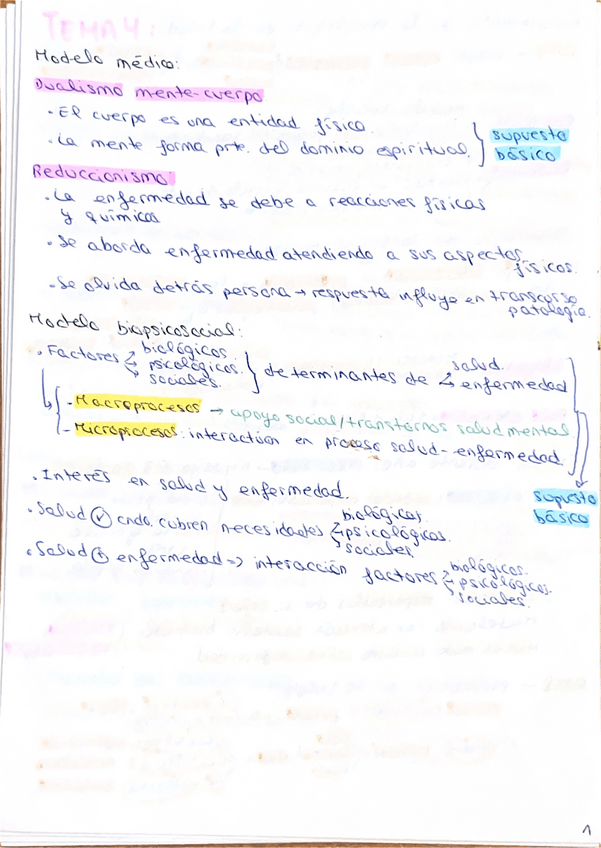 TEMA 4
Modelo médico:
Dualismo mente-cuerpo
· El cuerpo es una entidad física.
· La mente forma prte. del dominio espiritual.
supuesto
básico
Reduccionismo
· La enfermedad se debe a reacciones físicas
y químicas
· Se aborda enfermedad atendiendo a sus aspectos
físicos.
· Se olvida detrás persona → respuesta influye en transcurso
patología.
Modelo biopsicosocial:
· Factores biológicos.
psicológicos.
sociales.
determinantes de salud.
enfermedad
- Macroprocesos → apoyo social/transtornos salud mental
- Microprocesos: interacción en proceso salud-enfermedad.
supuesto
básico
· Interés en salud y enfermedad.
· Salud cndo. cubren necesidades biológicas.
psicológicas.
sociales.
· Salud enfermedad => interacción factores biológicos.
psicológicos.
sociales.
1